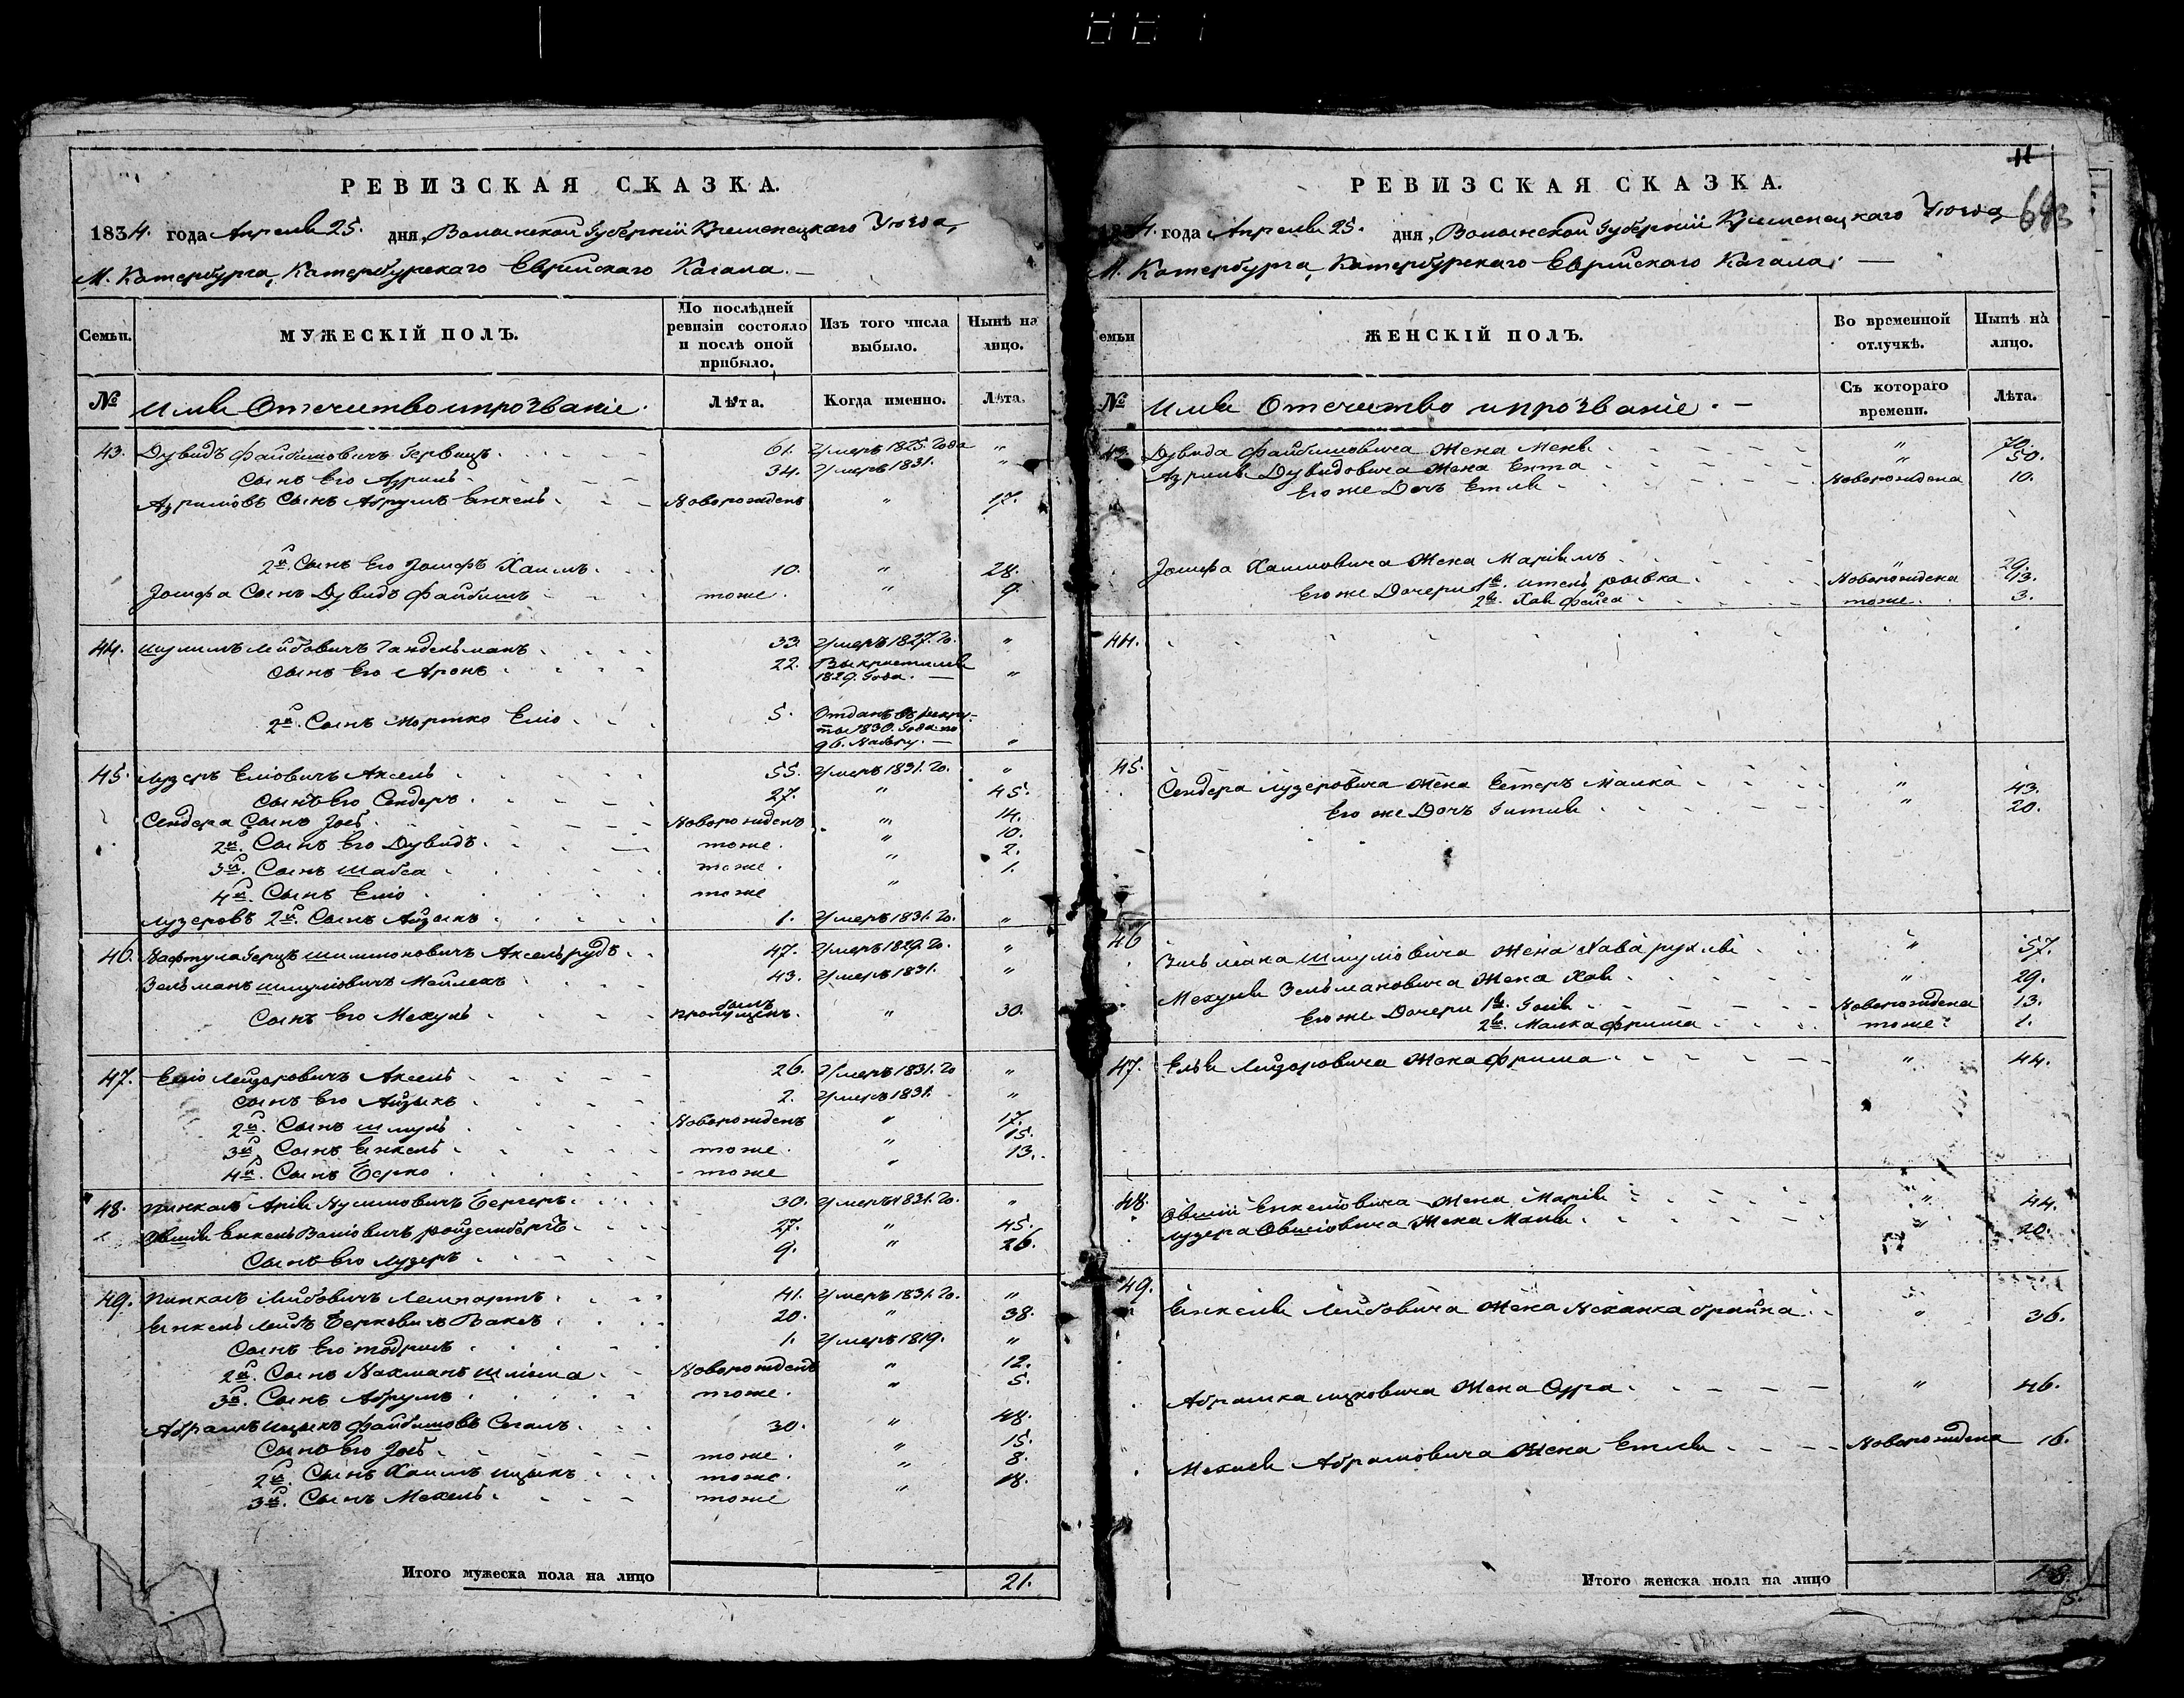 РЕВИЗСКАЯ СКАЗКА.
1834. года Апреля 25. дня, Волынской Губернiи Кременецкаго Уезда,
М. Катербурга, Катербургскаго Еврейскаго Кагала. —
Семьи.
МУЖЕСКІЙ ПОЛЪ.
По послѣдней ревизіи состояло и послѣ оной прибыло.
Изъ того числа выбыло.
Нынѣ на лицо.
№
Имя Отечество и прозваніе.
Лѣта.
Когда именно.
Лѣта.
43. Дувидъ Файбишовичъ Гервицъ 61. Умеръ 1825. года "
Сынъ Его Азриль 34. Умеръ 1831. "
Азрилювъ Сынъ Абрумъ Енкель Новорожденъ " 17.
2й. Сынъ Его Іосифъ Хаимъ 10. " 28.
Іосифа Сынъ Дувидъ Файбишъ тоже. " 9.
44. Шулимъ Лейбовичъ Гандельманъ 33 Умеръ 1827. го. "
Сынъ Его Аронъ 22. Выкрестился 1829. Года. — "
2й. Сынъ Мортко Еліо 5. Отданъ въ рекру-
ты 1830. Года по
96. Набору. — "
45. Лузеръ Еліовичъ Аксель 55. Умеръ 1831. го. "
Сынъ Его Сендеръ 27. " 45.
Сендера Сынъ Зось Новорожденъ " 14.
2й. Сынъ Его Дувидъ тоже. " 10.
3й. Сынъ Шабса тоже. " 2.
4й. Сынъ Еліо тоже " 1.
Лузеровъ 2й. Сынъ Айзыкъ 1. Умеръ 1831. го. "
46. Нафтула Герцъ Шимоновичъ Аксельрудъ 47. Умеръ 1829. го. "
Зельманъ Шмуліовичъ Мейлехъ 43. Умеръ 1831. "
Сынъ Его Мехуль былъ пропущенъ. " 30.
47. Еліо Лейзоровичъ Аксель 26. Умеръ 1831. го "
Сынъ Его Айзыкъ 2. Умеръ 1831. "
2й. Сынъ Шмуль Новорожденъ " 17.
3й. Сынъ Енкель тоже. " 15.
4й. Сынъ Берко тоже " 13.
48. Пинхасъ Арія Нухимовичъ Бергеръ 30. Умеръ 1831. го. "
Овшія Енкель Воліовичъ Ройзенбергъ 27. " 45.
Сынъ Его Лузеръ 9. " 26.
49. Пинхасъ Лейбовичъ Лемпартъ 41. Умеръ 1831. го. "
Енкель Лейбъ Берковичъ Ваксъ 20. " 38.
Сынъ Его Тодрисъ 1. Умеръ 1819. "
2й. Сынъ Нахманъ Шліома Новорожденъ " 12.
3й. Сынъ Абрумъ тоже. " 5.
Абрамъ Ицыкъ Файбишовъ Сегалъ 30. " 48.
Сынъ Его Зось тоже. " 15.
2й. Сынъ Хаимъ Ицыкъ тоже. " 8.
3й. Сынъ Мехель тоже " 18.
Итого мужеска пола на лицо 21.
11
643
РЕВИЗСКАЯ СКАЗКА.
1834. года Апреля 25. дня, Волынской Губернiи Кременецкаго Уезда
М. Катербурга, Катербургскаго Еврейскаго Кагала. —
Семьи
ЖЕНСКІЙ ПОЛЪ.
Во временной отлучкѣ.
Нынѣ на лицо.
№
Имя Отечество и прозваніе. —
Съ котораго времени.
Лѣта.
43. Дувида Файбишовича Жена Меня " 70.
Азриля Дувидовича Жена Ента " 50.
Его же Дочь Етля Новорождена 10.
Іосифа Хаимовича Жена Маріямъ " 29.
Его же Дочери 1я. Ителъ рывка Новорождена 13.
2я. Хая Фейга тоже. 3.
44.
45. Сендера Лузеровича Жена Естеръ Малка " 43.
Его же Дочь Гитля " 20.
46 Зельмана Шмуліовича Жена Хава рухля " 57.
Мехуля Зельмановича Жена Хая " 29.
Его же Дочери 1я. Голя Новорождена 13.
2я. Малка Фрима тоже. 1.
47. Елья Лейзоровича Жена Фрима " 44.
48. Овшій Енкеліовича Жена Марія " 44.
Лузера Овшіовича Жена Маня " 20.
49. Енкеля Лейбовича Жена Неханка брайна " 36.
Абрамка Ицковича Жена Сура " 46.
Мехеля Абрамовича Жена Етля Новорождена 16.
Итого женска пола на лицо 18.